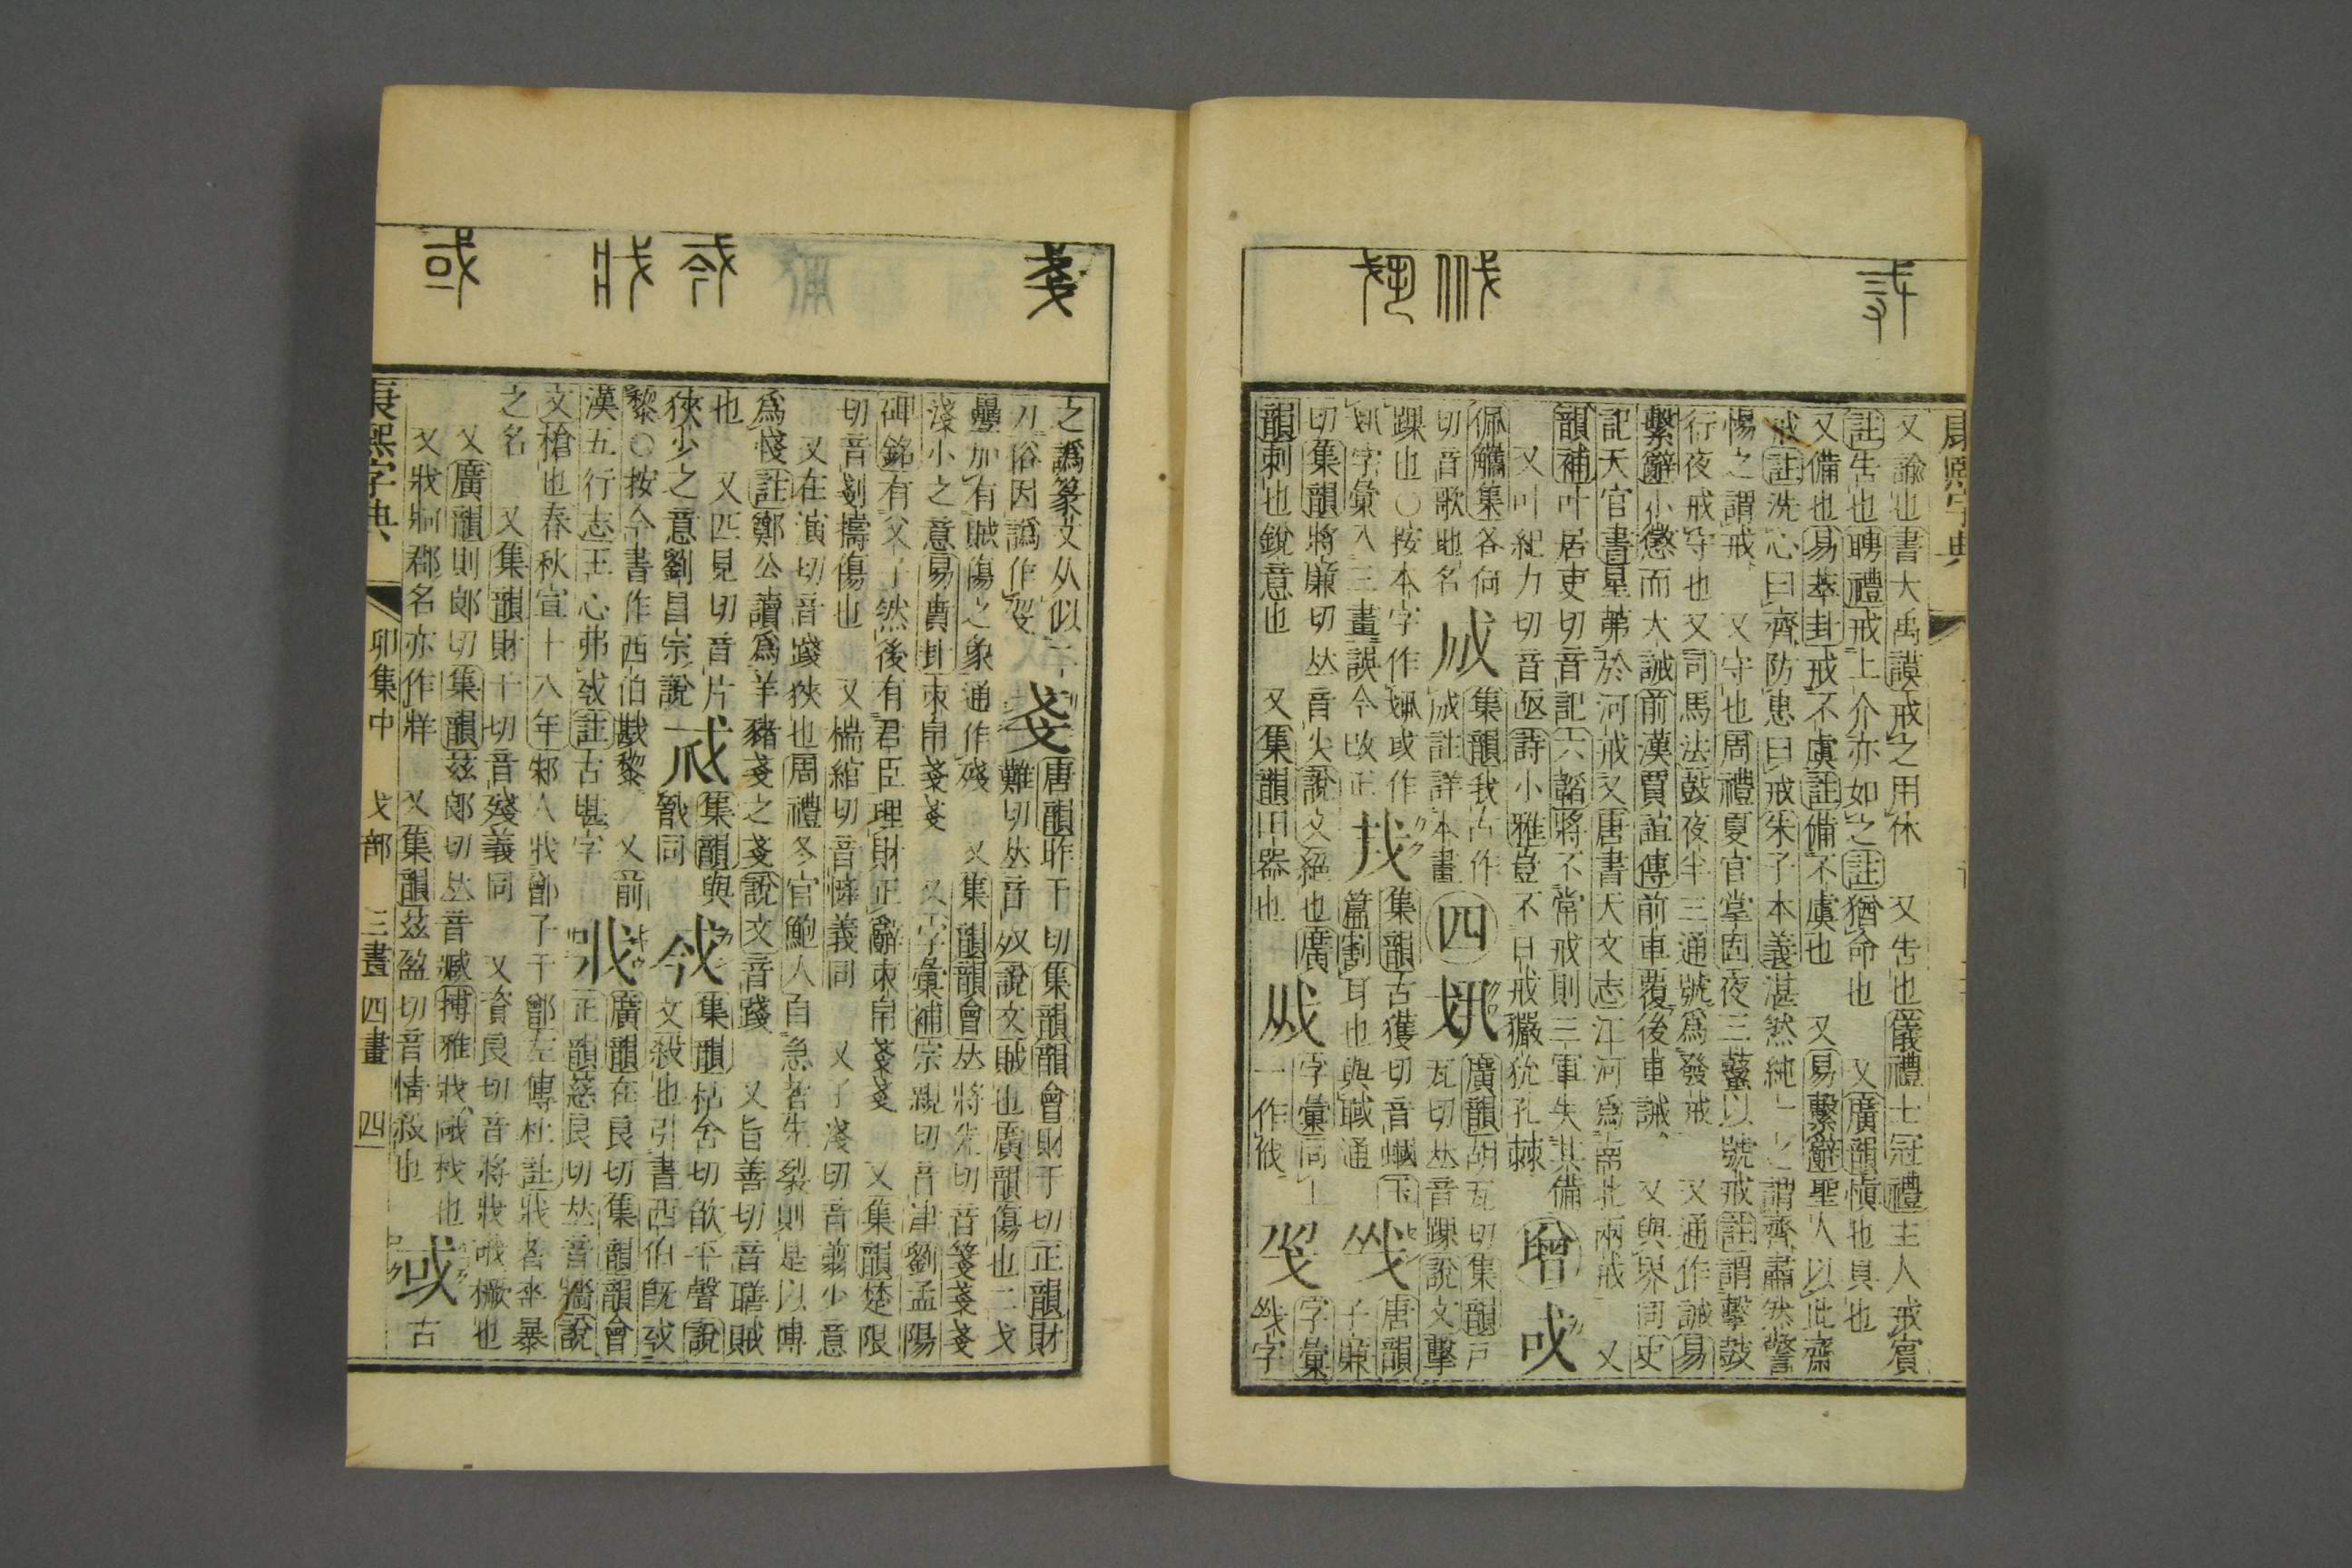 康熙字典
又諭也書大禹謨戒之用休 又告也儀禮士冠禮主人戒賓
註告也聘禮戒上介亦如之註猶命也 又廣韻愼也具也
又備也易萃卦戒不虞註備不虞也 又易繫辭聖人以此齋
戒註洗心曰齊防患曰戒朱子本義湛然純一之謂齊肅然警
惕之謂戒 又守也周禮夏官掌固夜三鼜以號戒註謂擊鼓
行夜戒守也又司馬法鼓夜半三通號爲發戒 又通作誡易
繫辭小懲而大誡前漢賈誼傳前車覆後車誡 又與界同史
記天官書星茀於河戒又唐書天文志江河爲南北兩戒 又
韻補叶居吏切音記六韜將不常戒則三軍失其備
又叶紀力切音亟詩小雅豈不日戒玁狁孔棘 增 㦯
佩觿集各何切音歌地名 戚 集韻我古作戚註詳本畫 四
廣韻胡瓦切集韻戶瓦切𠀤音踝說文擊踝也○按本字作
或作 字彙入三畫誤今改正
集韻古獲切音蟈玉篇割耳也與聝通
唐韻子廉切集韻將廉切𠀤音尖說文絕也廣韻刺也銳意也 又集韻田器也
字彙同上 一作
字彙 字
之譌篆文从似二刀俗因譌作 戔 唐韻昨干切集韻韻會財干切正韻財
難切𠀤音奴說文賊也廣韻傷也二戈
壘加有賊傷之象通作殘 又集韻韻會𠀤將先切音箋戔戔
淺小之意易賁卦束帛戔戔 又字彙補宗親切音津劉孟陽
碑銘有父子然後有君臣理財正辭束帛戔戔 又集韻楚限
切音剗擣傷也 又楇綰切音 義同 又子淺切音翦少意
又在演切音踐狹也周禮冬官鮑人自急者先裂則是以博
爲帴註鄭公讀爲羊豬戔之戔說文音踐 又旨善切音𦗢賊
也 又匹見切音片狹少之意劉昌宗說 集韻與戩同 㦰
集韻枯含切歆平聲說文殺也引書西伯旣㦰
黎○按今書作西伯戡黎 又前漢五行志王心弗㦰註古堪字
戕 廣韻在良切集韻韻會正韻慈良切𠀤音牆說
文槍也春秋宣十八年邾人戕鄫子于鄫左傳杜註戕者卒暴
之名 又集韻財干切音殘義同 又資良切音將戕戕橛也
又廣韻則郎切集韻茲郎切𠀤音臧博雅戕㦻杙也
又戕牁郡名亦作牂 又集韻茲盈切音情殺也 或 古
康熙字典 卯集中 戈部 三畫 四畫 四